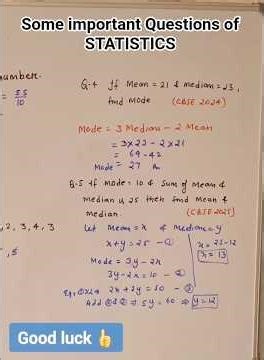 Some important Questions of
STATISTICS
number.
= 55
10
Q.4 If Mean = 21 & median = 23,
find mode (CBSE 2024)
Mode = 3 Median - 2 Mean
= 3×23 - 2×21
= 69-42
Mode = 27 A
Q.5 If mode = 10 & Sum of Mean &
median is 25 then find Mean &
median. (CBSE 2025)
, 2, 3, 4, 3
Let Mean = x & Median = y
x+y = 25 - ①
x = 25-12
x = 13
Mode = 3y - 2x
3y - 2x = 10 - ②
,5
Eq. ①×2 2x + 2y = 50 - ③
Add ② & ③ ⇒ 5y = 60 ⇒ y = 12
Good luck 👍